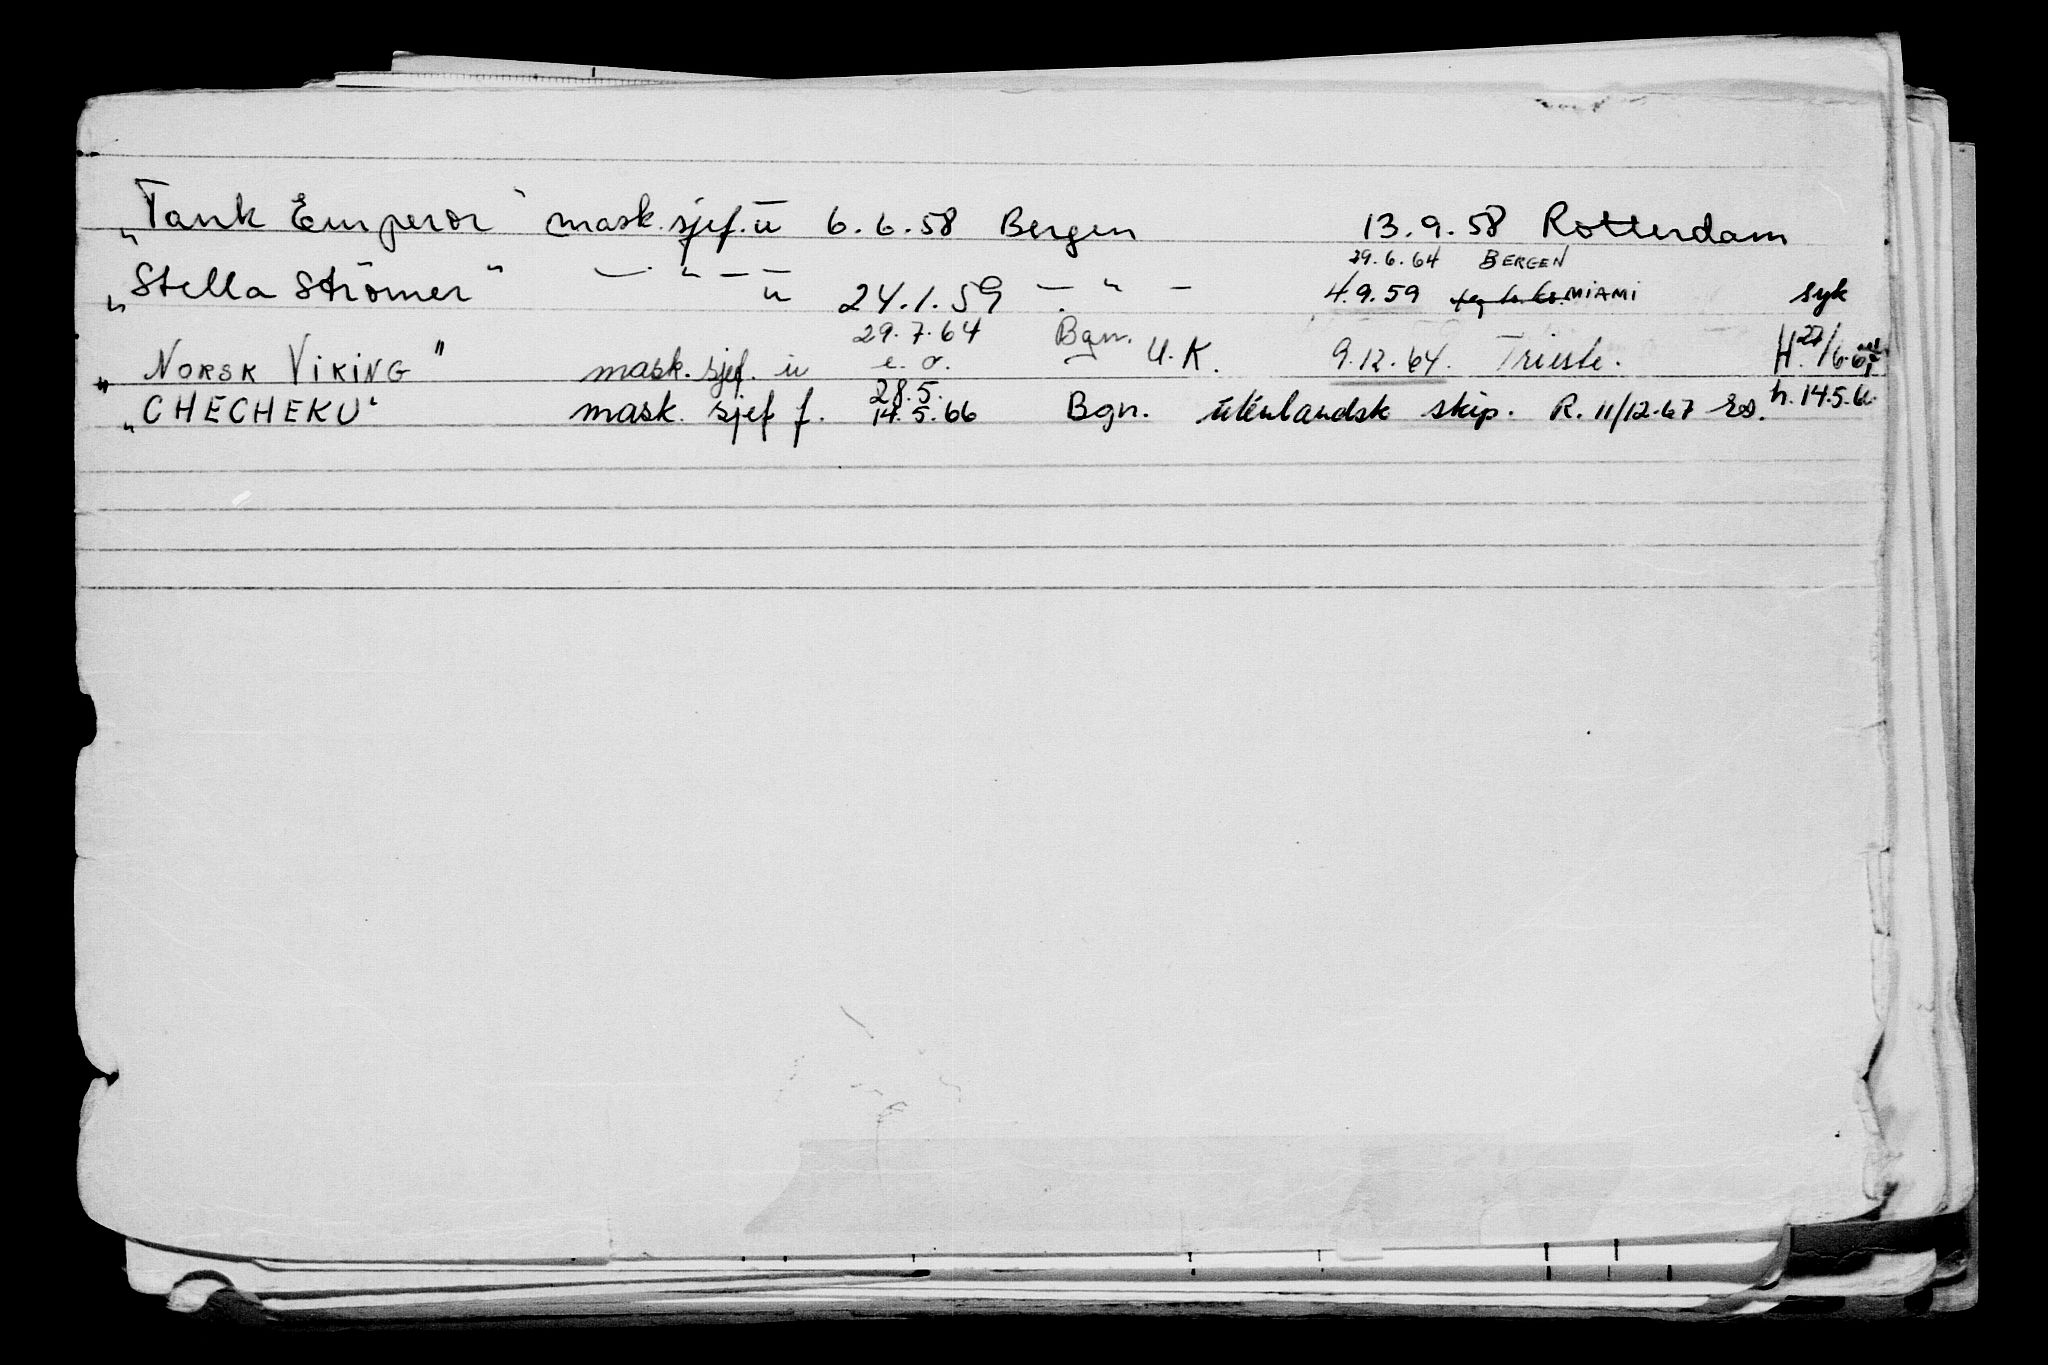 „Tank Emperor" mask.sjef. u 6.6.58 Bergen 13.9.58 Rotterdam
29.6.64 BERGEN
„Stella Strömer" — " — u 24.1.59 — " — 4.9.59 MIAMI syk
29.7.64 Bgn.
"NORSK VIKING" mask. sjef. u e. o. U.K. 9.12.64. Trieste.
28.5.
„CHECHEKU" mask. sjef f. 14.5.66 Bgn. utenlandsk skip. R. 11/12.67 es.